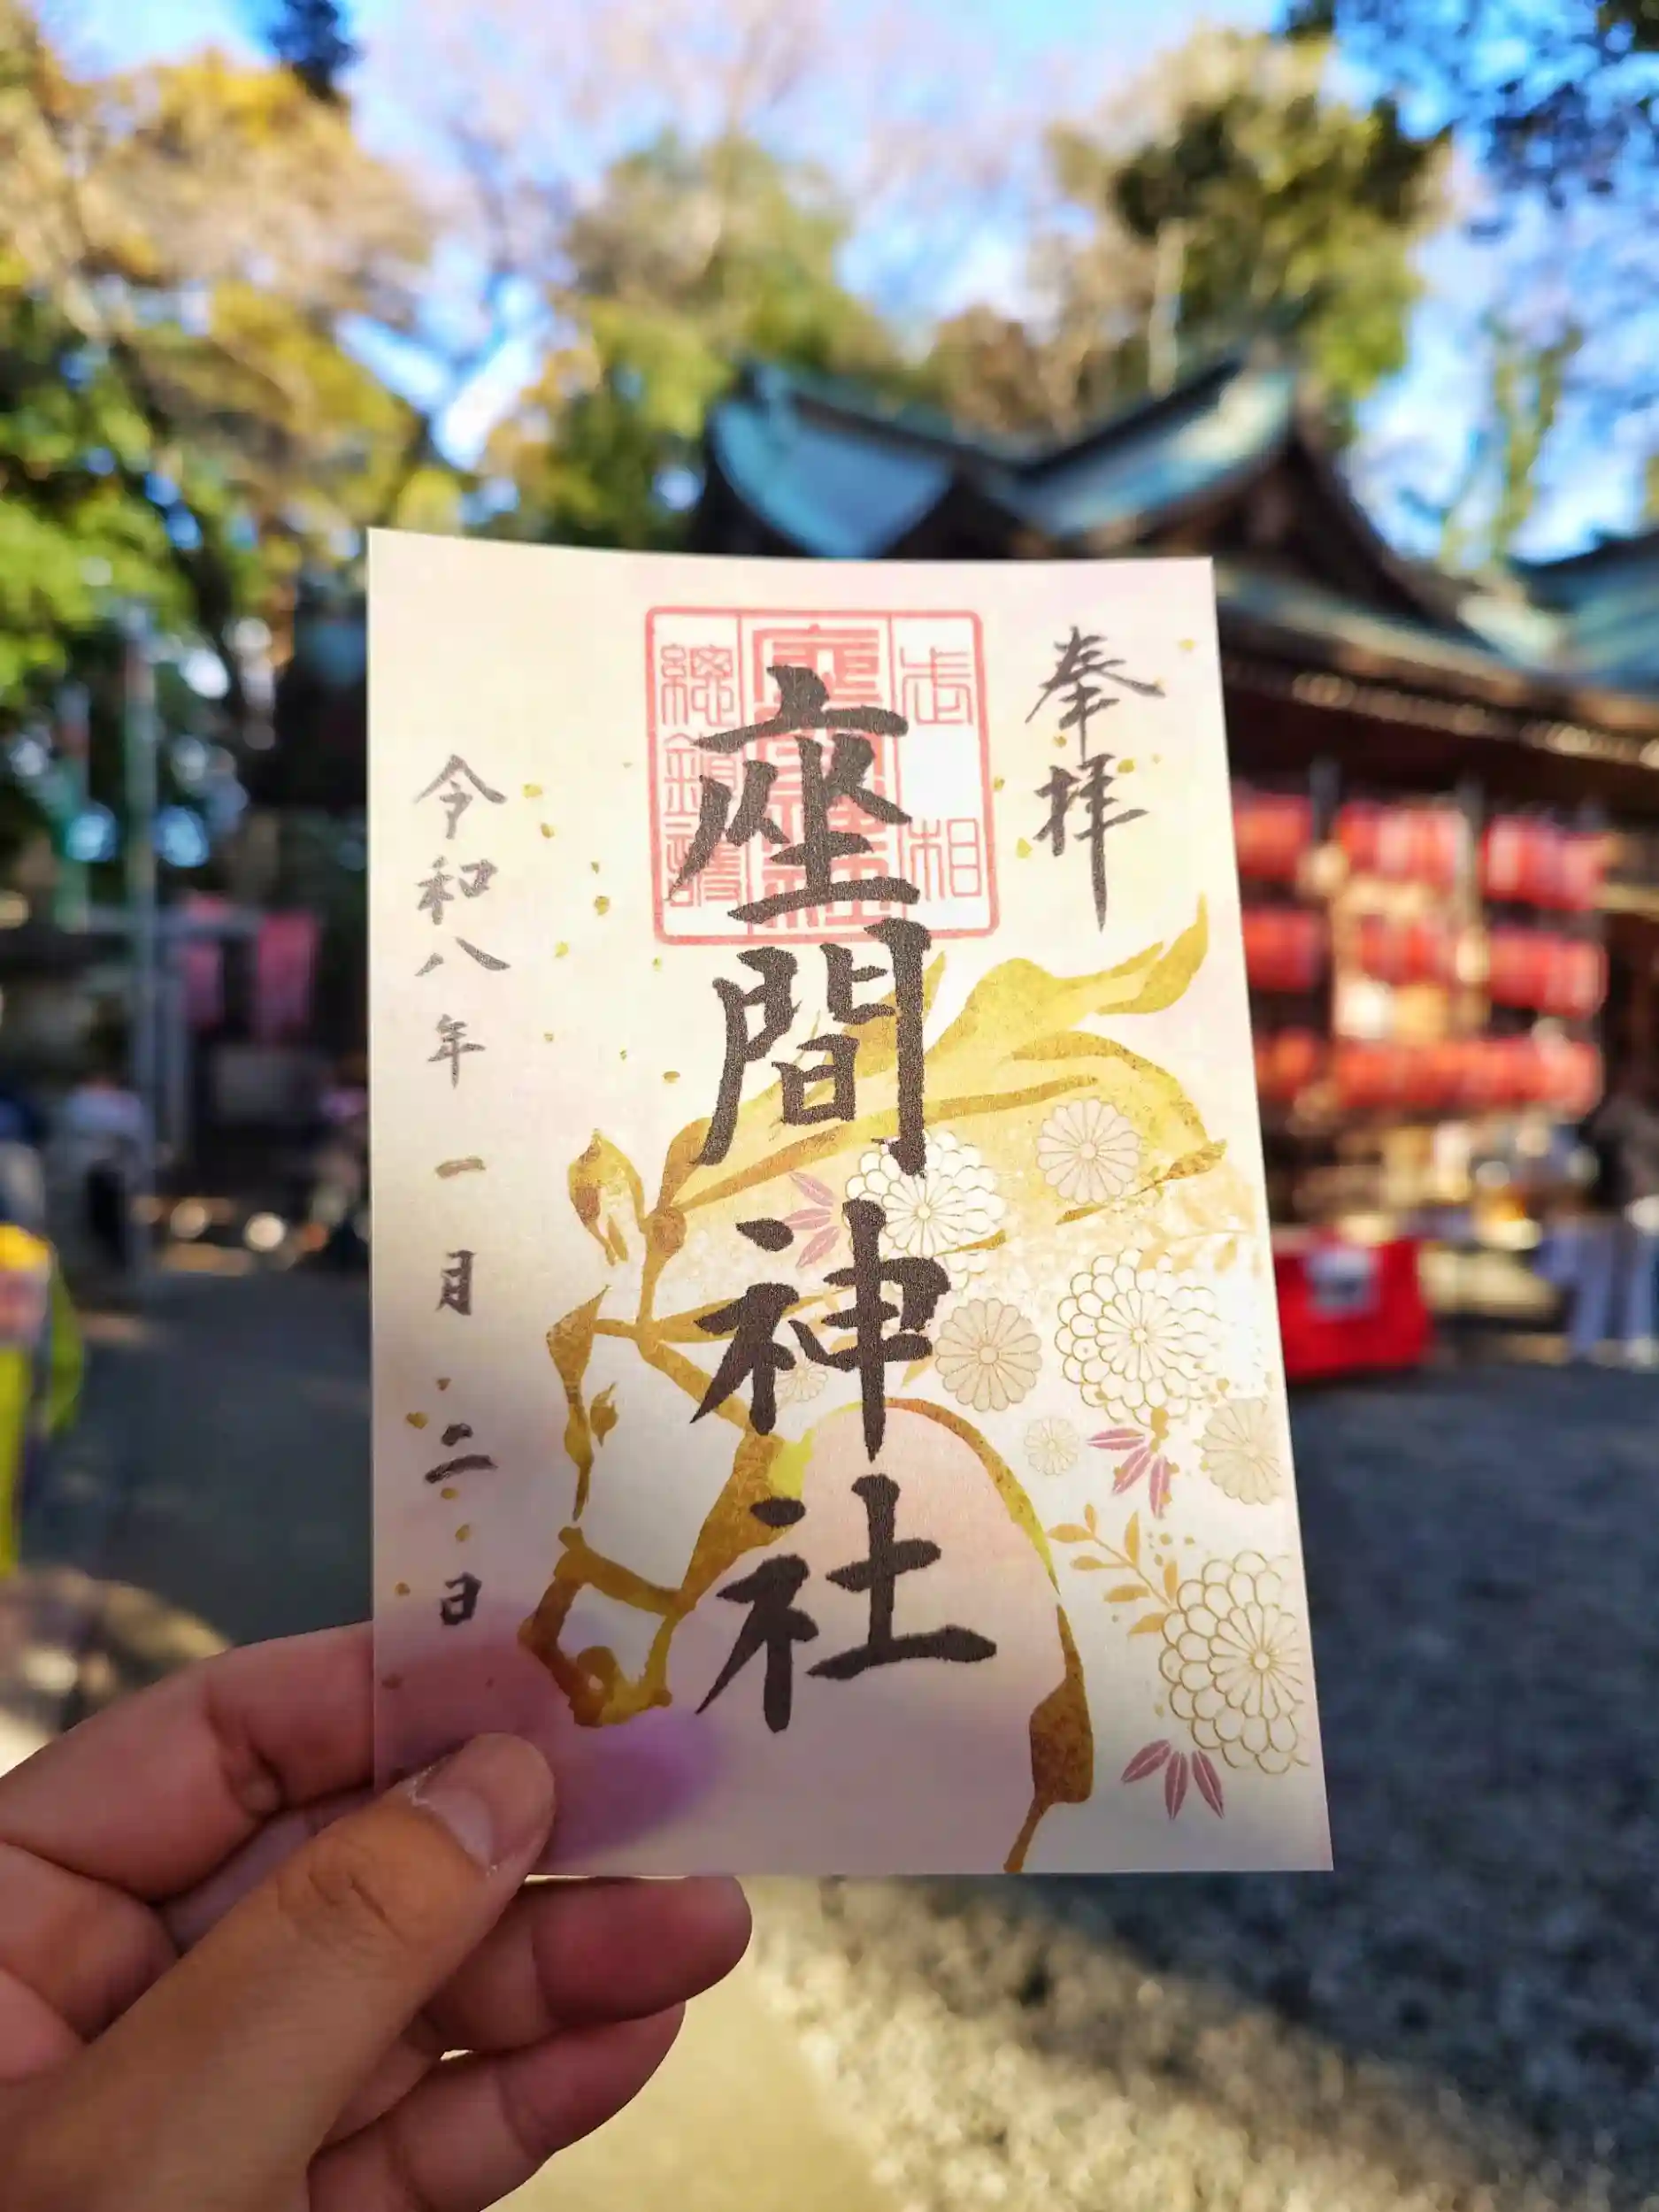 奉拝
武相
座間神社
總鎮護
座間神社
令和八年一月二日